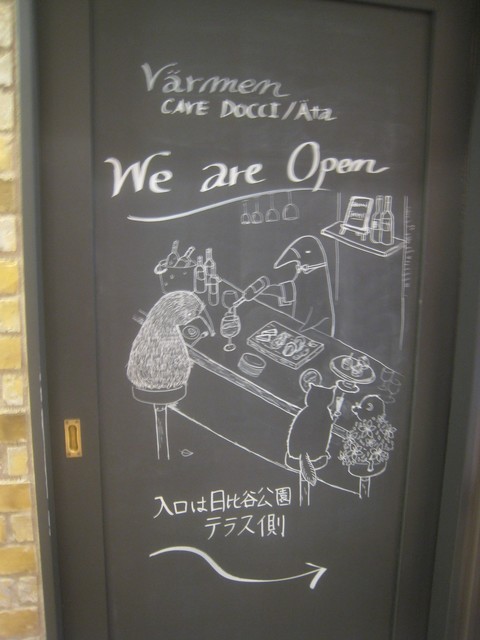 Värmen
CAVE DOCCI/Äta
We are Open
入口は日比谷公園
テラス側